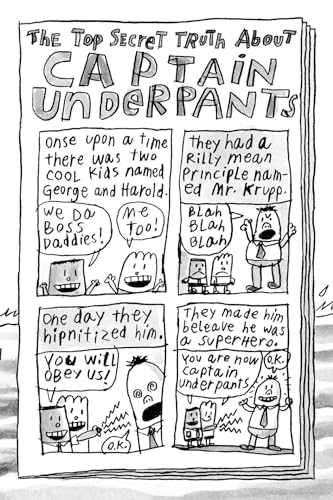 The Top Secret Truth About
Captain
Underpants
onse upon a time
there was two
cool kids named
George and Harold.
We Da
Boss
Daddies!
Me
too!
they had a
Rilly mean
Principle nam-
ed Mr. Krupp.
Blah
Blah
Blah
One day they
hipnitized him.
You will
obey us!
O.K.
They made him
beleave he was
a superHero.
You are now
captain
underpants
O.K.